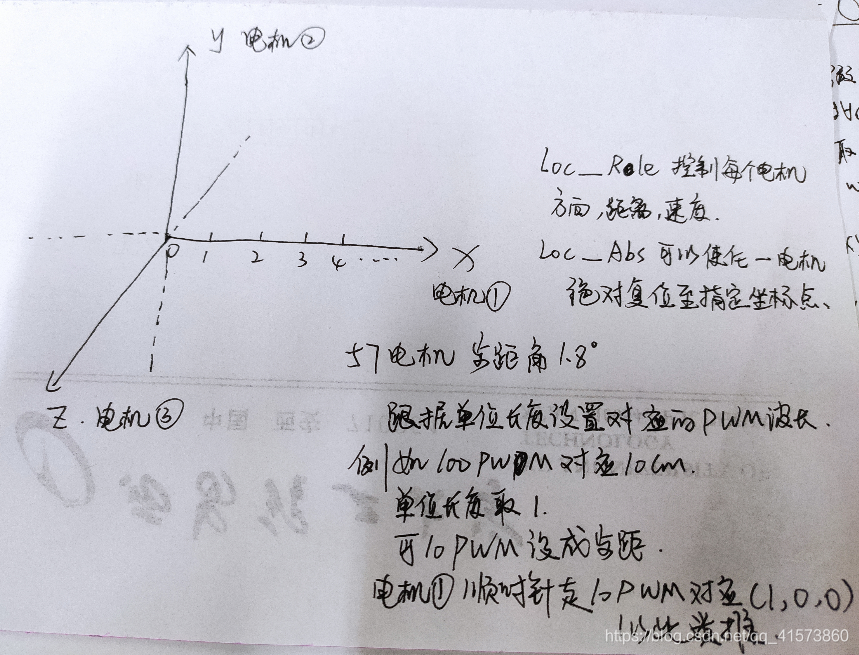 y 电机②
Loc_Role 控制每个电机
方面,距离,速度.
Loc_Abs 可以使任一电机
绝对复位至指定坐标点、
0 1 2 3 4 ..... X
电机①
57电机 步距角 1.8°
Z. 电机③
跟据单位长度设置对应的PWM波长.
例如100PWM对应10cm.
单位长度取1.
可10PWM设成步距.
电机①顺时针走10PWM对应(1,0,0)
以此类推.
https://blog.csdn.net/qq_41573860
TECHNOLOGY